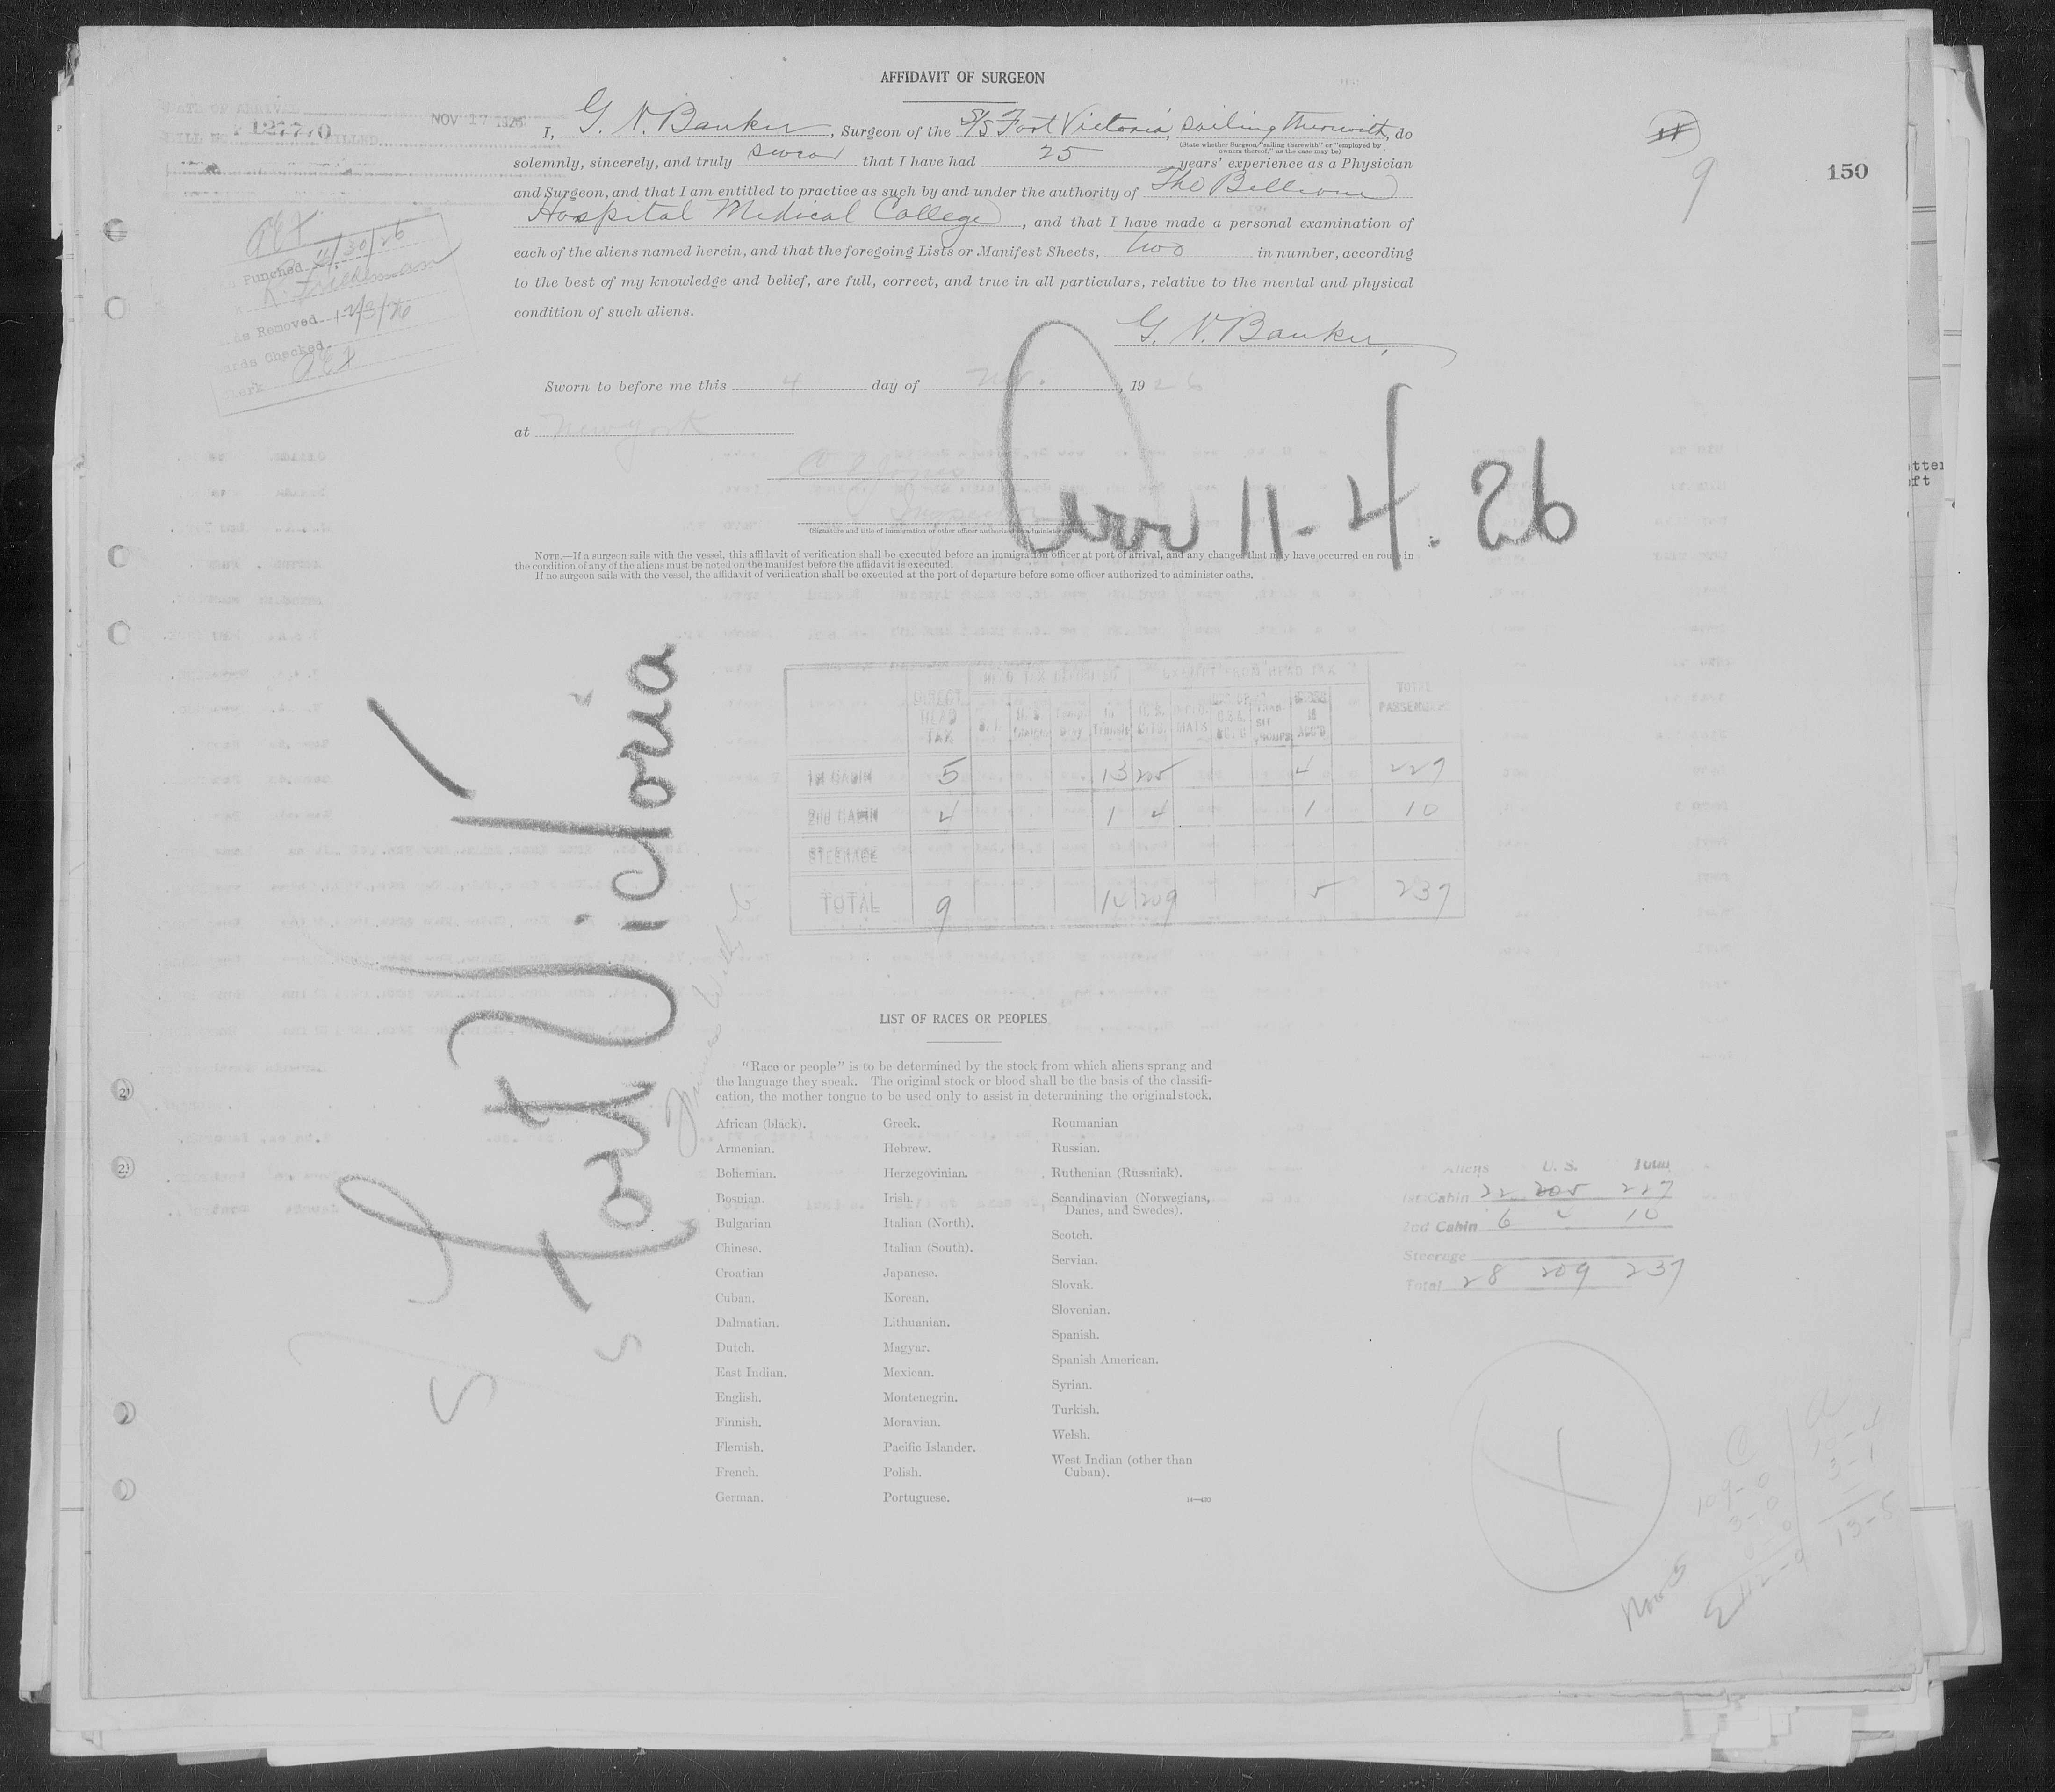 AFFIDAVIT OF SURGEON
DATE OF ARRIVAL NOV 17 1926
BILL NO. 127770 BILLED
I, G. N. Banker, Surgeon of the S/S Fort Victoria, sailing therewith, do
(State whether Surgeon "sailing therewith" or "employed by
owners thereof," as the case may be)
solemnly, sincerely, and truly swear that I have had 25 years' experience as a Physician
and Surgeon, and that I am entitled to practice as such by and under the authority of The Bellevue
Hospital Medical College, and that I have made a personal examination of
each of the aliens named herein, and that the foregoing Lists or Manifest Sheets, two in number, according
to the best of my knowledge and belief, are full, correct, and true in all particulars, relative to the mental and physical
condition of such aliens.
G. N. Banker,
9
150
Punched 11/30/26
Removed 12/3/26
Cards Checked
Clerk
Sworn to before me this 4 day of Nov., 1926
at New York
Inspector
(Signature and title of immigration or other officer authorized to administer
Arr 11-4.26
NOTE.—If a surgeon sails with the vessel, this affidavit of verification shall be executed before an immigration officer at port of arrival, and any changes that may have occurred en route in
the condition of any of the aliens must be noted on the manifest before the affidavit is executed.
If no surgeon sails with the vessel, the affidavit of verification shall be executed at the port of departure before some officer authorized to administer oaths.
Fort Victoria
DIRECT HEAD TAX
EXEMPT FROM HEAD TAX
In Transit
U.S. CITS.
TOTAL PASSENGERS
1st CABIN 5 13 205 4 227
2nd CABIN 4 1 4 1 10
STEERAGE
TOTAL 9 14 209 5 237
LIST OF RACES OR PEOPLES
"Race or people" is to be determined by the stock from which aliens sprang and
the language they speak. The original stock or blood shall be the basis of the classifi-
cation, the mother tongue to be used only to assist in determining the original stock.
African (black).
Armenian.
Bohemian.
Bosnian.
Bulgarian
Chinese.
Croatian
Cuban.
Dalmatian.
Dutch.
East Indian.
English.
Finnish.
Flemish.
French.
German.
Greek.
Hebrew.
Herzegovinian.
Irish.
Italian (North).
Italian (South).
Japanese.
Korean.
Lithuanian.
Magyar.
Mexican.
Montenegrin.
Moravian.
Pacific Islander.
Polish.
Portuguese.
Roumanian
Russian.
Ruthenian (Russniak).
Scandinavian (Norwegians,
Danes, and Swedes).
Scotch.
Servian.
Slovak.
Slovenian.
Spanish.
Spanish American.
Syrian.
Turkish.
Welsh.
West Indian (other than
Cuban).
14—430
Aliens U. S. Total
1st Cabin 22 205 227
2nd Cabin 6 4 10
Steerage
Total 28 209 237
109-0
3-0
112-0
10-4
3-1
13-5